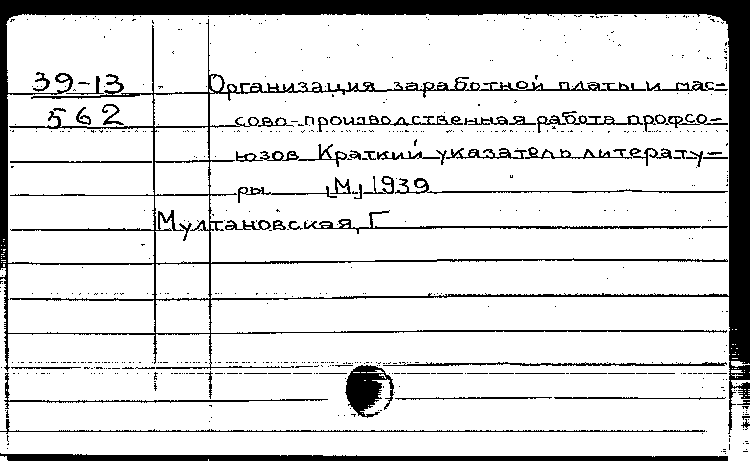 39-13 Организация заработной платы и мас-
562 сово-производственная работа профсо-
юзов Краткий указатель литерату-
ры [М] 1939
Мултановская, Г